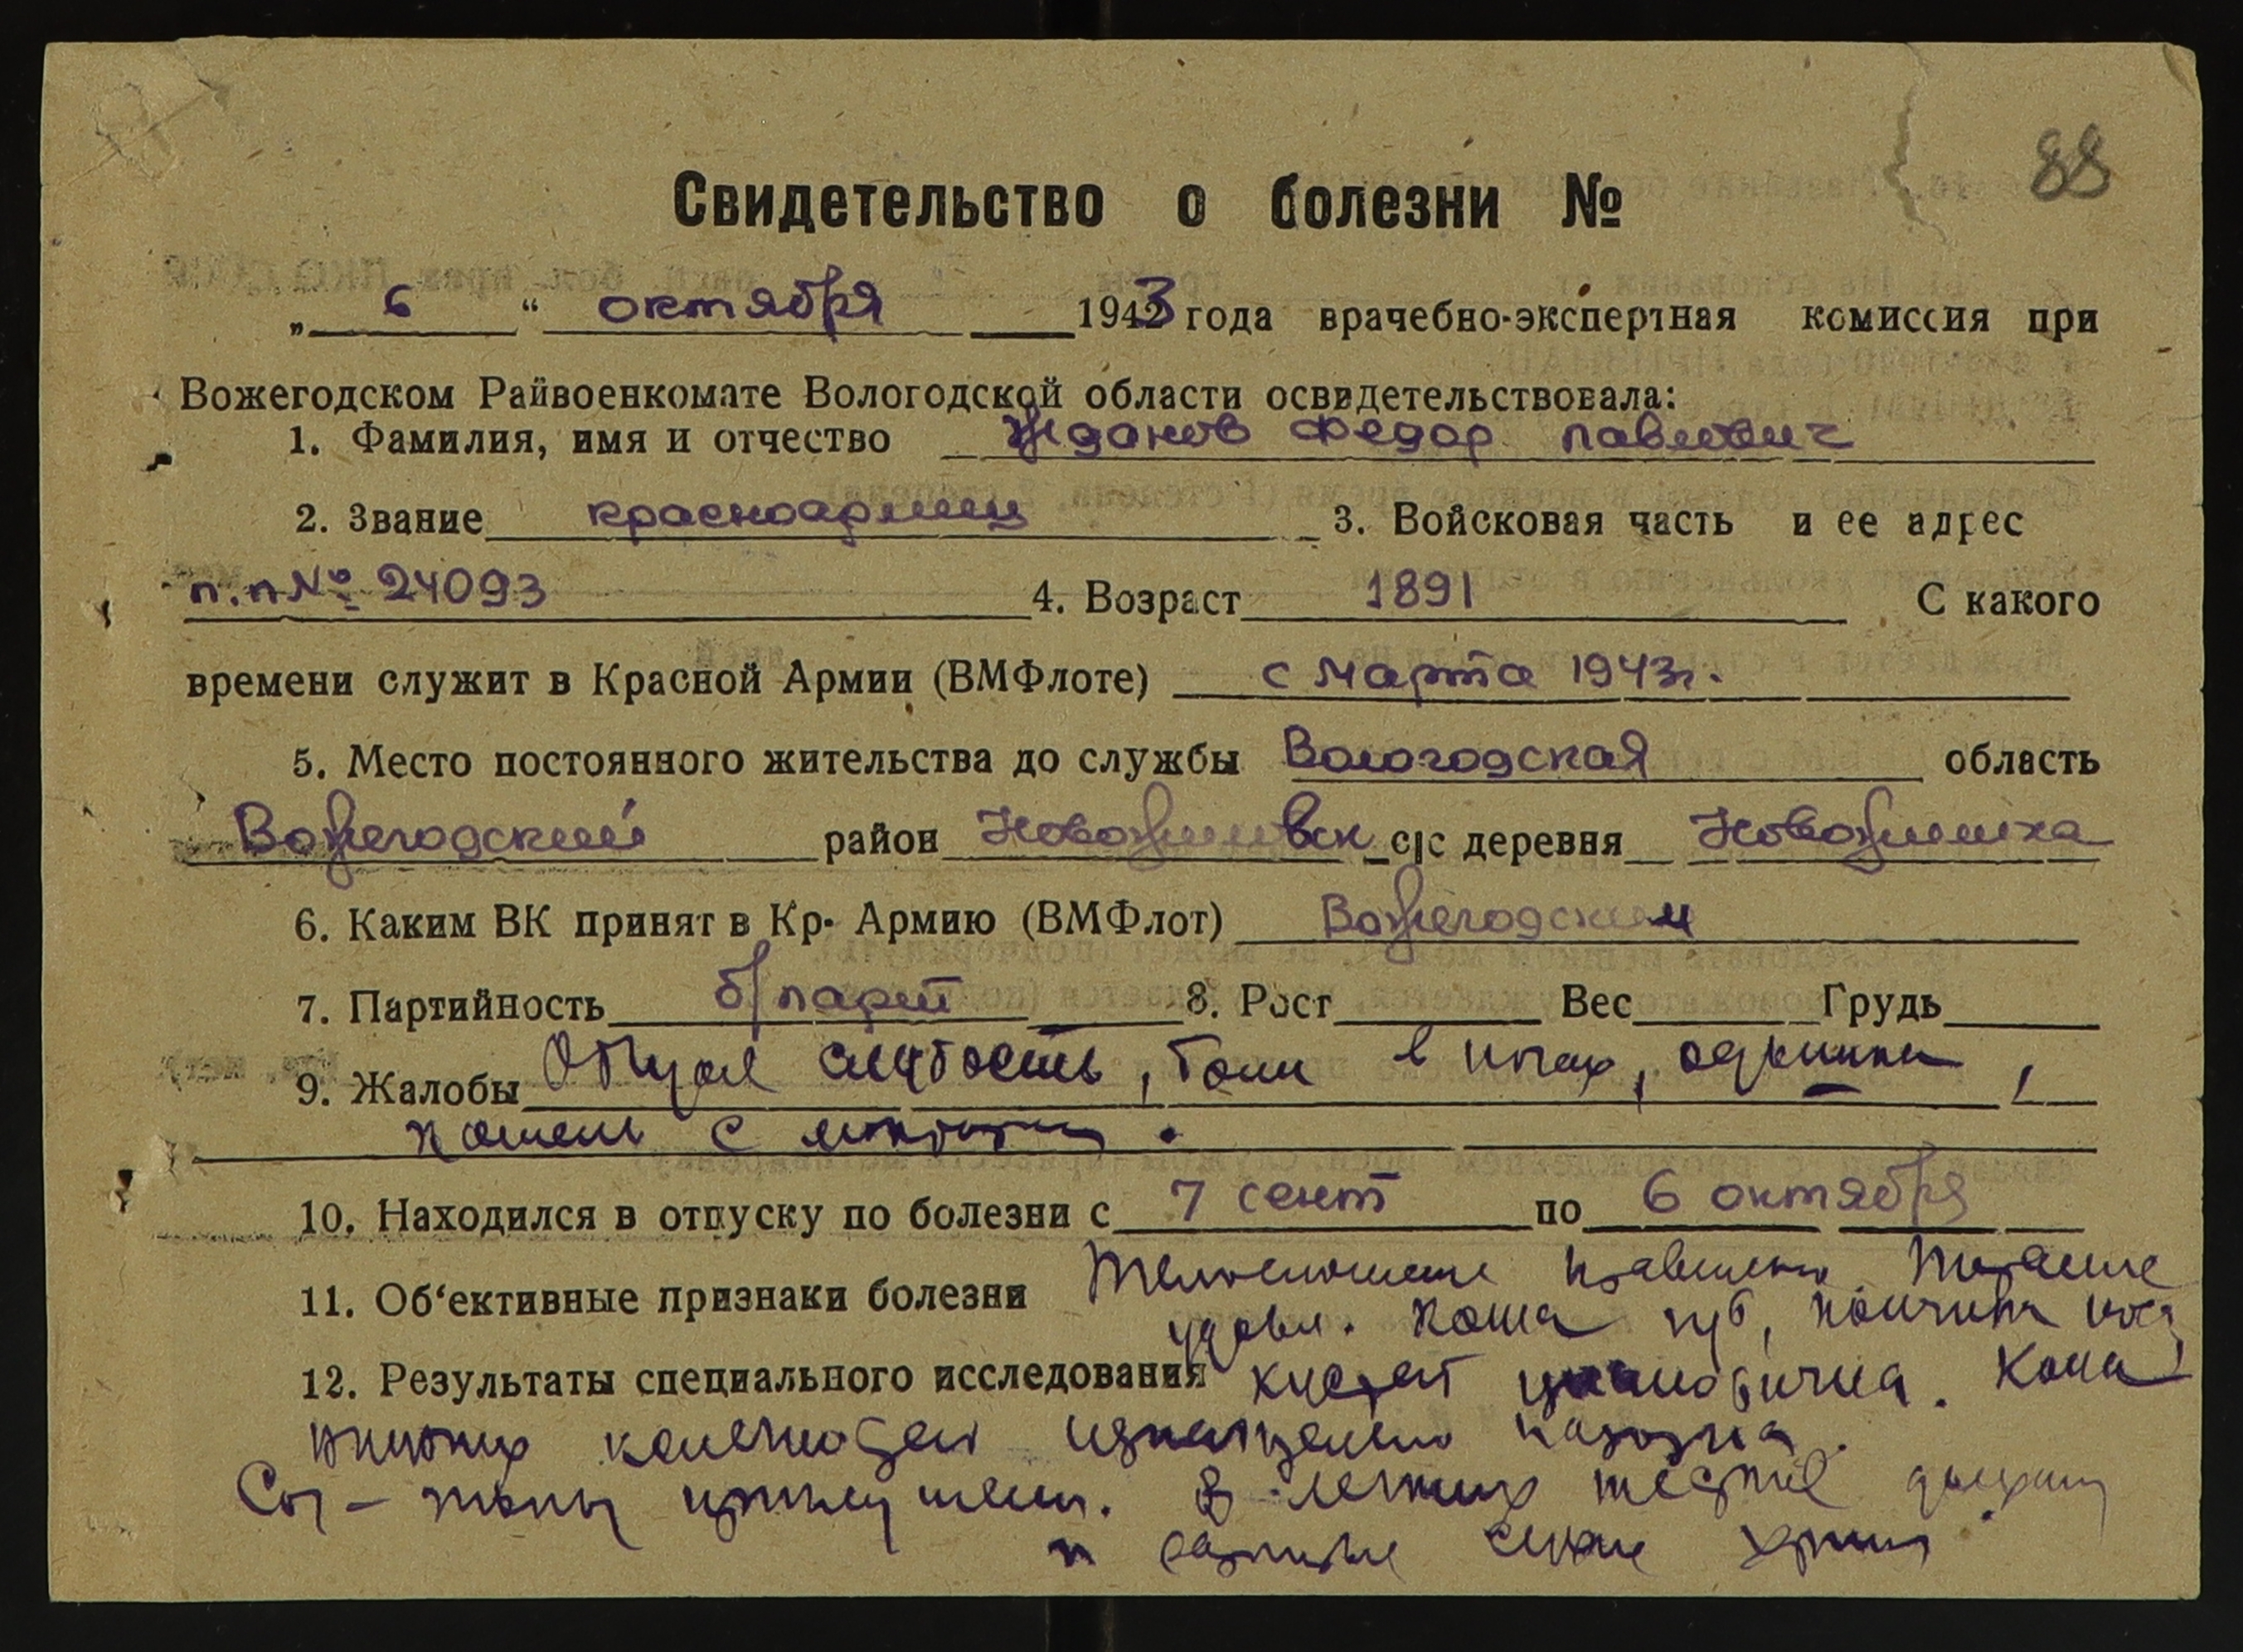 88
Свидетельство о болезни №
„ 6 “ октября 1943 года врачебно-экспертная комиссия при
Вожегодском Райвоенкомате Вологодской области освидетельствовала:
1. Фамилия, имя и отчество Жданов Федор павлович
2. Звание красноармеец 3. Войсковая часть и ее адрес
п.п № 24093 4. Возраст 1891 С какого
времени служит в Красной Армии (ВМФлоте) с марта 1943г.
5. Место постоянного жительства до службы Вологодская область
Вожегодский район с|с деревня
6. Каким ВК принят в Кр. Армию (ВМФлот) Вожегодским
7. Партийность б/парт 8. Рост Вес Грудь
9. Жалобы Общая слабость, боли в ногах, одышка,
кашель с мокротой.
10. Находился в отпуску по болезни с 7 сент по 6 октября
11. Об‘ективные признаки болезни Телосложение правильное. Питание
удовл. Кожа губ, кончика носа,
12. Результаты специального исследования кистей цианотична. Кожа
нижних конечностей
Сор- тоны В легких жесткое дыхание
и сухие хрипы